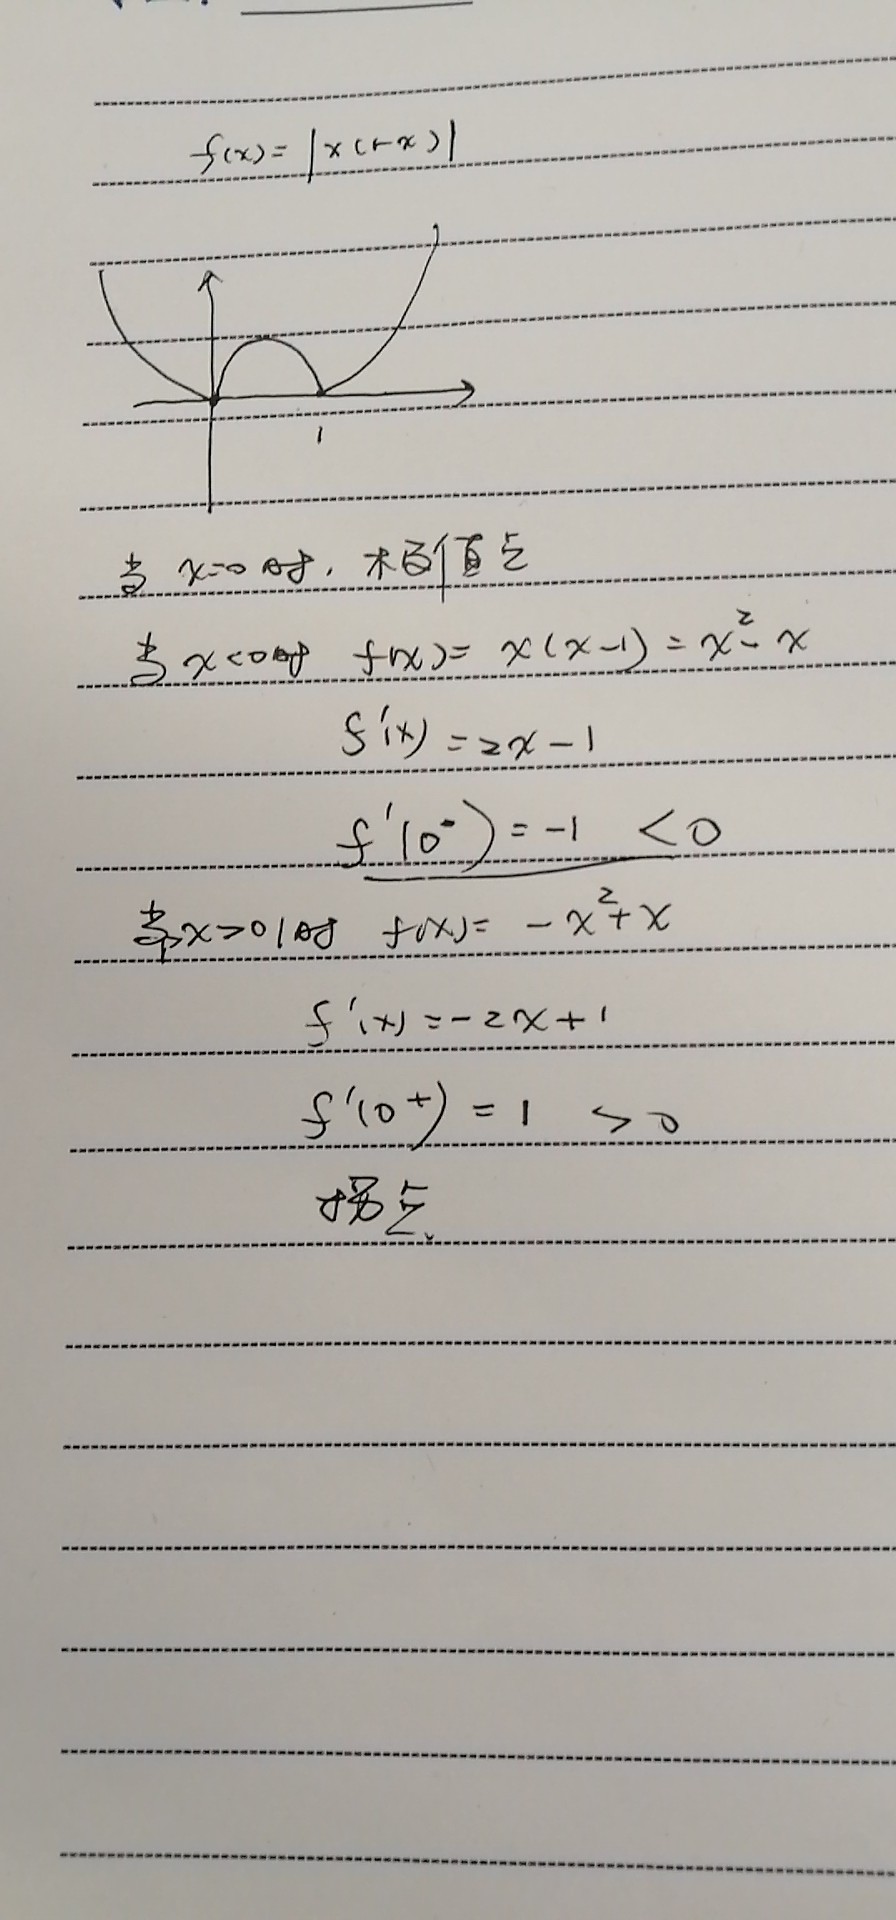 f(x)=|x(1-x)|
1
当 x=0 时, 极值点
当 x<0时 f(x)= x(x-1)=x²-x
f'(x)=2x-1
f'(0⁻)=-1 <0
当x>0时 f(x)= -x²+x
f'(x)=-2x+1
f'(0⁺)=1 >0
拐点